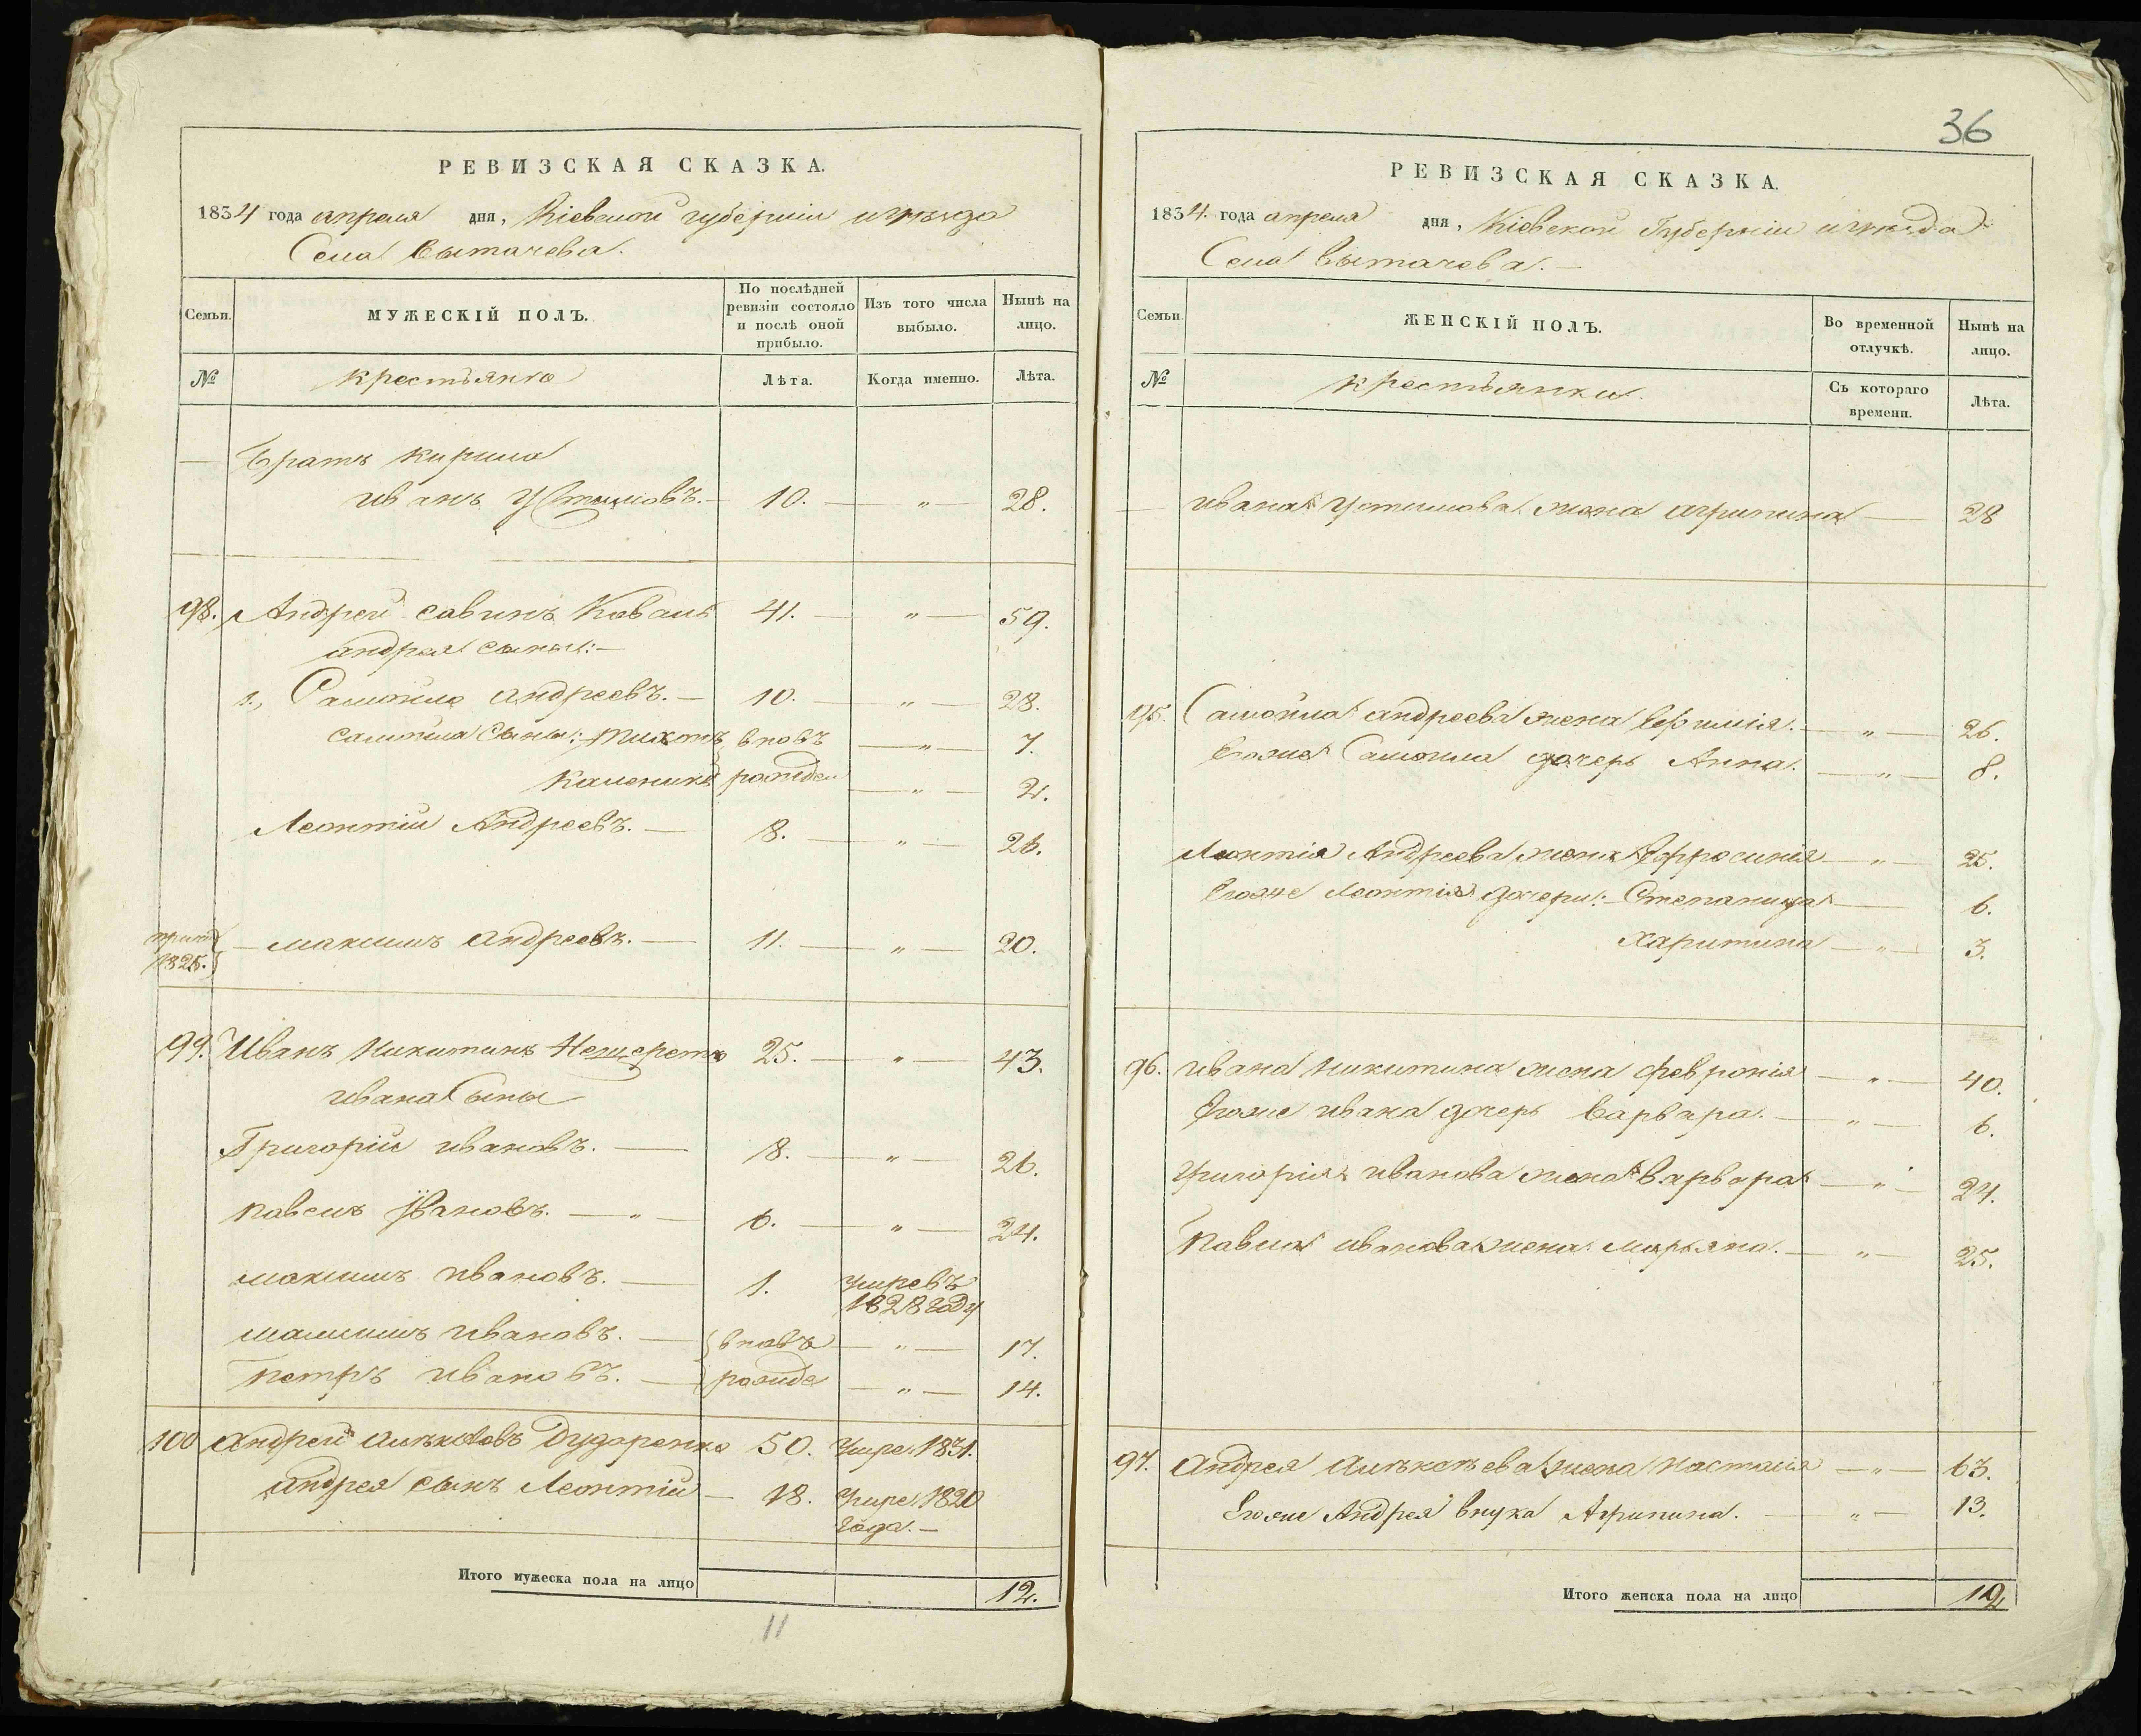 РЕВИЗСКАЯ СКАЗКА.
1834 года апреля дня, Кіевской губерніи и уезда
Села Вытачева.
Семьи. МУЖЕСКІЙ ПОЛЪ. По послѣдней ревизіи состояло и послѣ оной прибыло. Изъ того числа выбыло. Нынѣ на лицо.
№ крестьяне Лѣта. Когда именно. Лѣта.
— Братъ Кирила
иванъ Устимовъ. — 10. — " — 28.
98. Андрей савинъ Коваль 41. — " — 59.
андрея сыны: —
1., Самойло андреевъ. — 10. — " — 28.
самойла Сыны: Тихонъ вновь — " — 7.
Каленикъ рожден — " — 2.
Леонтій Андреевъ. — 8. — " — 26.
1825. — максимъ андреевъ. — 11. — " — 20.
99. Иванъ Никитинъ Нещеретъ 25. — " — 43.
ивана Сыны
Григорій ивановъ. — 8. — " — 26.
павелъ Ивановъ. — " — 6. — " — 24.
максимъ ивановъ. — 1. умре въ
1828 году
ивановъ. — вновь — " — 17.
петръ ивановъ. — рожде — " — 14.
100 Андрей Алексѣевъ Дударенко 50. Умре 1831.
андрея сынъ Леонтій — 18. Умре 1820
года. —
Итого мужеска пола на лицо 12.
11
36
РЕВИЗСКАЯ СКАЗКА.
1834. года апреля дня, Кіевской Губерніи и уезда
Села Вытачева. —
Семьи. ЖЕНСКІЙ ПОЛЪ. Во временной отлучкѣ. Нынѣ на лицо.
№ крестьянки. Съ котораго времени. Лѣта.
— ивана Устимова жена агрипина — 28
95. Самойла андреева жена Ефимія. — " — 26.
Егоже Самойла дочерь Анна. — " — 8.
Леонтія Андреева жена Ефросинія — " — 25.
Егоже Леонтія дочери: Степанида — 6.
Харитина — " — 3.
96. ивана Никитина жена Февронія — " — 40.
Егоже ивана дочерь Варвара. — " — 6.
григорія иванова жена Варвара — " — 24.
Павла иванова жена Марьяна. — " — 25.
97. Андрея Алексѣева жена Настасія — " — 63.
Егоже Андрея внука Агрипина. — " — 13.
Итого женска пола на лицо 12